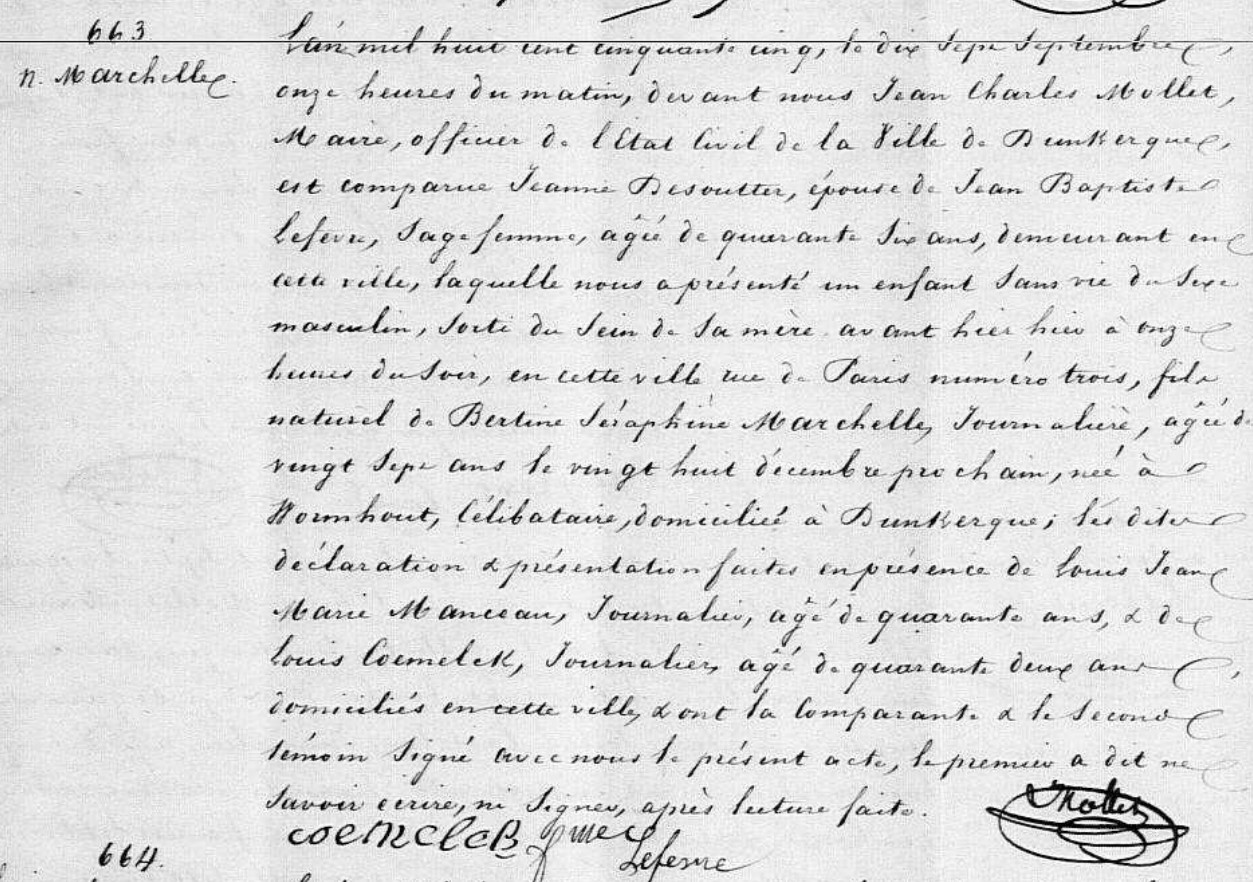 663
n. Marchelle.
L'an mil huit cent cinquante cinq, le dix Sept Septembre,
onze heures du matin, devant nous Jean Charles Mollet,
Maire, officier de l'Etat Civil de la Ville de Dunkerque,
est comparue Jeanne Desoutter, épouse de Jean Baptiste
Lefevre, Sage femme, agéé de quarante Six ans, demeurant en
cette ville, laquelle nous a présenté un enfant Sans vie du Sexe
masculin, Sorti du Sein de Sa mère avant hier hier à onze
heures du Soir, en cette ville rue de Paris numéro trois, fils
naturel de Bertine Séraphine Marchelle, Journalière, agéé de
vingt Sept ans le vingt huit décembre prochain, neé à
Wormhout, Célibataire, domiciliéé à Dunkerque; les dites
déclaration & présentation faites en présence de Louis Jean
Marie Manceau, Journalier, agé de quarante ans, & de
Louis Coemelck, Journalier, agé de quarante deux ans,
domiciliés en cette ville, & ont la Comparante & le Second
témoin Signé avec nous le présent acte, le premier a dit ne
Savoir écrire, ni Signer, après lecture faite.
Mollet
coemelcB fme
Lefevre
664.